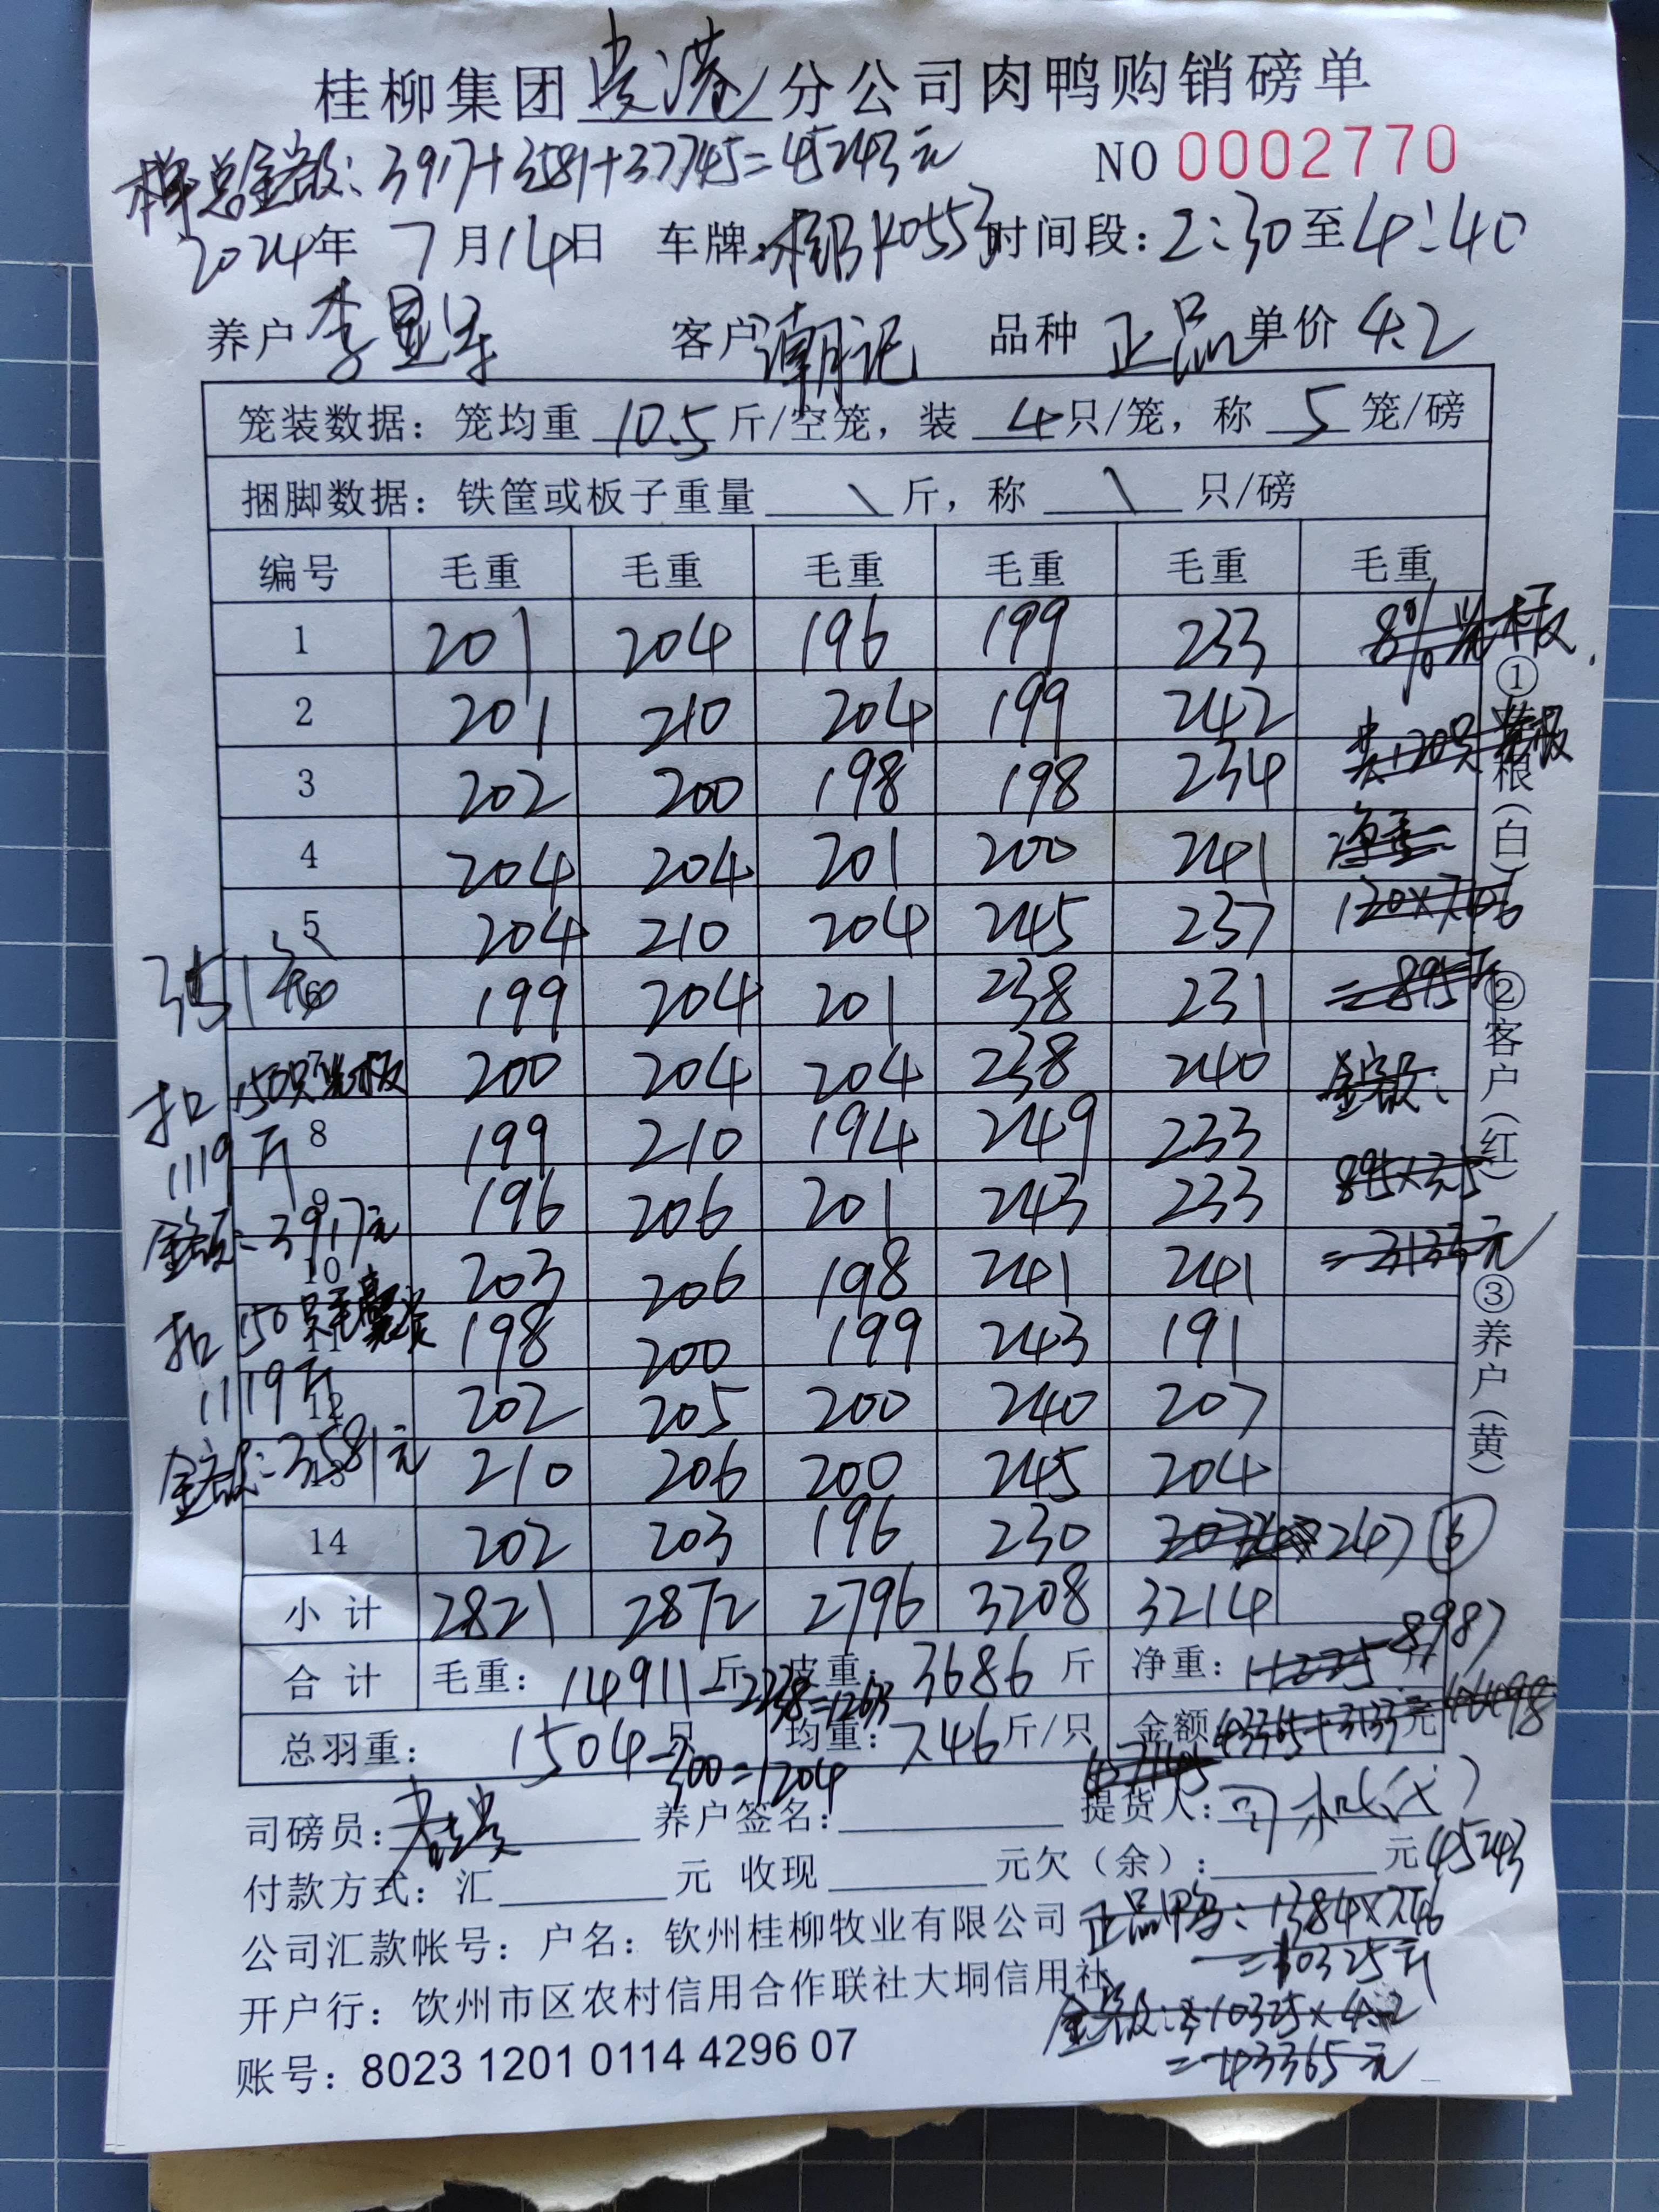 桂柳集团贵港分公司肉鸭购销磅单
总金额：3917+3581+37745=45243元
NO 0002770
2024年 7月14日 车牌 桂R K0553 时间段：2:30至4:40
养户 李显 客户 潮记 品种 正品 单价 4.2
笼装数据：笼均重 10.5 斤/空笼，装 4 只/笼，称 5 笼/磅
捆脚数据：铁筐或板子重量 \ 斤，称 \ 只/磅
编号 毛重 毛重 毛重 毛重 毛重 毛重
1 201 204 196 199 233 8%光板
2 201 210 204 199 242 共120只光板
3 202 200 198 198 234
4 204 204 201 200 241 净重：
5 204 210 204 245 237 120×7.46
6 199 204 201 238 231 =895斤
200 204 204 238 240 金额：
8 199 210 194 249 233 895×3.5
9 196 206 201 243 233 =3133元
10 203 206 198 241 241
11 198 200 199 243 191
12 202 205 200 240 207
13 210 206 200 245 204
14 202 203 196 230 247 ⑥
小计 2821 2872 2796 3208 3214
合计 毛重：14911斤 皮重：3686斤 净重：11225斤 8987
-2238=12673
总羽重：1504只 均重：7.46斤/只 金额 43365+3133元 46498
-300=1204
351笼
扣150只光板
1119斤
金额=3917元
扣150只
1119斤
金额=3581元
①存根（白）②客户（红）③养户（黄）
司磅员： 养户签名： 提货人：司机（代）
付款方式：汇 元 收现 元欠（余）： 元 45243
公司汇款帐号：户名：钦州桂柳牧业有限公司
正品鸭：1384×7.46
=10325斤
开户行：钦州市区农村信用合作联社大垌信用社
金额：10325×4.2
=43365元
账号：8023 1201 0114 4296 07